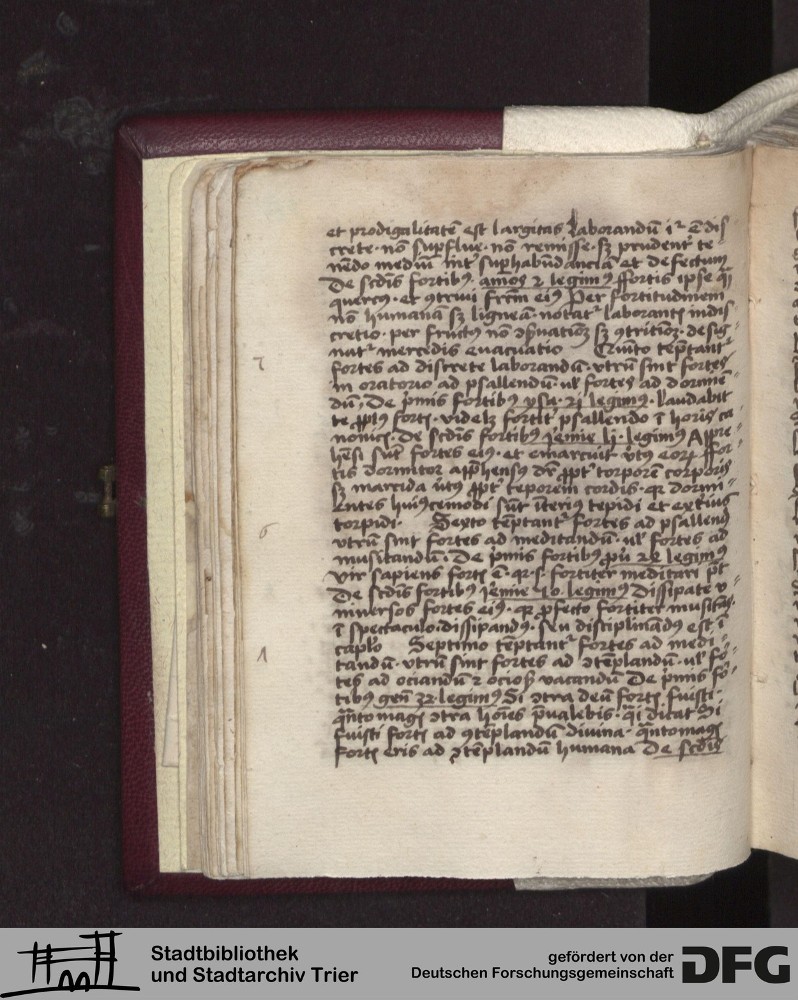 et prodigalitatē est largitas Laborandū iᵗ ē dis
crete. nō supflue. nō remisse. sꝫ prudent te
nēdo mediū int suphabūdanciā et defectum
De scdis fortibꝰ. amos 2 legimꝰ ffortis ipse q̄i
quercꝰ. et ꝯtrivi frcm eiꝰ Per fortitudinem
nō humanā sꝫ ligneā. notatʳ laborantis indis
cretio. per fructū nō
natʳ mercedis euacuatio Quīto tēptantʳ
fortes ad discrete laborandū. vtrū sint fortes
in oratorio ad psallendū. ul fortes ad dormiē
dū, De p̄mis fortibꝰ ysa. 25 legimꝰ. Laudabit
te pplꝰ fortꝭ. videlꝫ fortit psallendo ī horis ca
nonicꝭ. De scdis fortibꝰ jemie li. legimꝰ Appre
hēsi sūt fortes eiꝰ. et emarcuit vtꝰ eoꝝ ffor
tis dormitor appħensꝰ dr̄ ꝓpt torporē corporis
sꝫ marcida vtꝰ ꝓpt teporem cordis. qꝛ dormi
entes huiꝰcemodi sūt īteriꝰ tepidi et exteriꝰ
torpidi. Sexto tēptantʳ fortes ad psallendū
vtrū sint fortes ad meditandū. ul fortes ad
musitandū. De p̄mis fortibꝰ pū 24 legimꝰ
vir sapiens fortꝭ ē. qꝛ s. fortiter meditari pt
De scdis fortibꝰ jemie 10. legimꝰ Dissipate v
niuersos fortes eiꝰ. qꝛ ꝓfecto fortiter
ī spectaculo. dissipandꝰ. seu disciplinādꝰ est ī
caplo Septimo tēptantʳ fortes ad medi
tandū. vtrū sint fortes ad ꝯtēplandū. ul for
tes ad ociandū 2 ociosꝭ vacandū De p̄mis for
tibꝰ gen̄ 32. legimꝰ Si ꝯtra deū fortꝭ fuisti.
q̄nto magꝭ ꝯtra hoīes p̄ualebis. q̄i dicat Si
fuisti fortꝭ ad ꝯtēplandū diuina. q̄ntomagꝭ
fortꝭ eris ad ꝯtēplandū humana De scdis
7
6
1
Stadtbibliothek
und Stadtarchiv Trier
gefördert von der
Deutschen Forschungsgemeinschaft
DFG